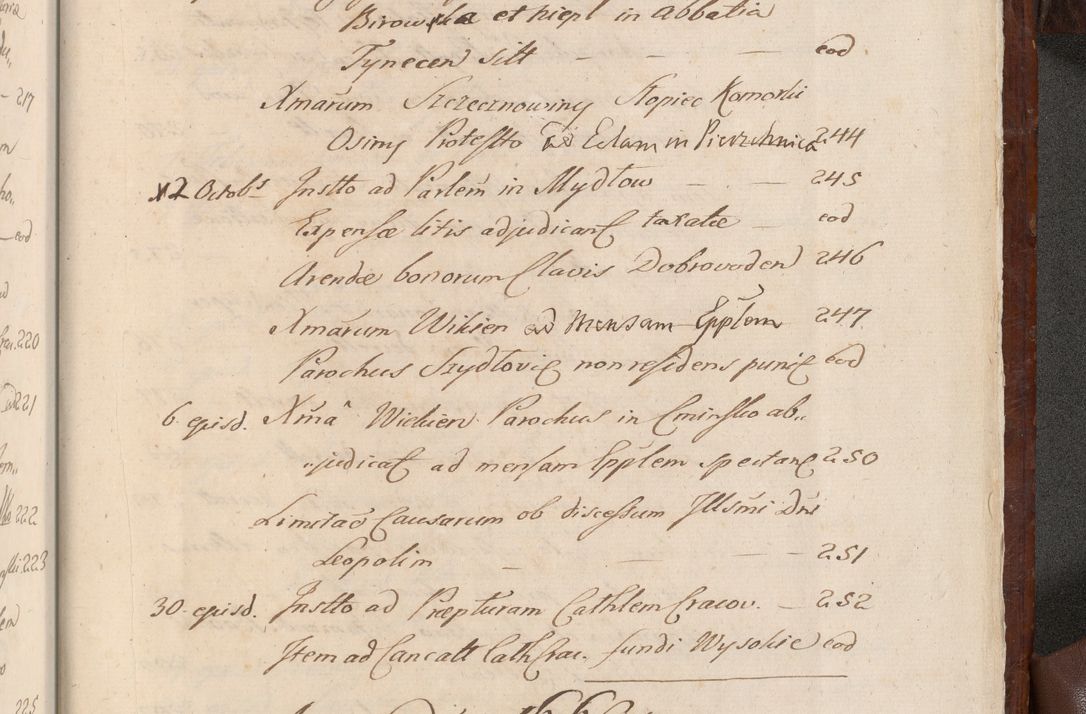 et hiept in abbatia
Tynecen) sitt – – — eod
Xmarum Szczecznowiny Stopiec Komorki
Osiny Protestto ad Eclam in Pierzchnica 244
12 Octob^s Instto ad Parlem in Mydtow — — 245
Expensæ litis adjudicant taxatæ — eod
Arendæ bonorum Clavis Dobrovoden) 246
Xmarum Wikien ad Mensam Epplem 247
Parochus Szydtovie non residens punit eod
6. ejusd. Xma Wickien Parochus in Cminsko ab„
„judicat ad mensam Epplem spectane 250
Limitao Causarum ob discessum Illsmi Dni
Leopolim – — — 251
30. ejusd. Instto ad Præpturam Cathlem Cracov. — 252
Item ad Cancatt Cath Crac. fundi Wysokie eod
217
eod
220
221
222
223
225